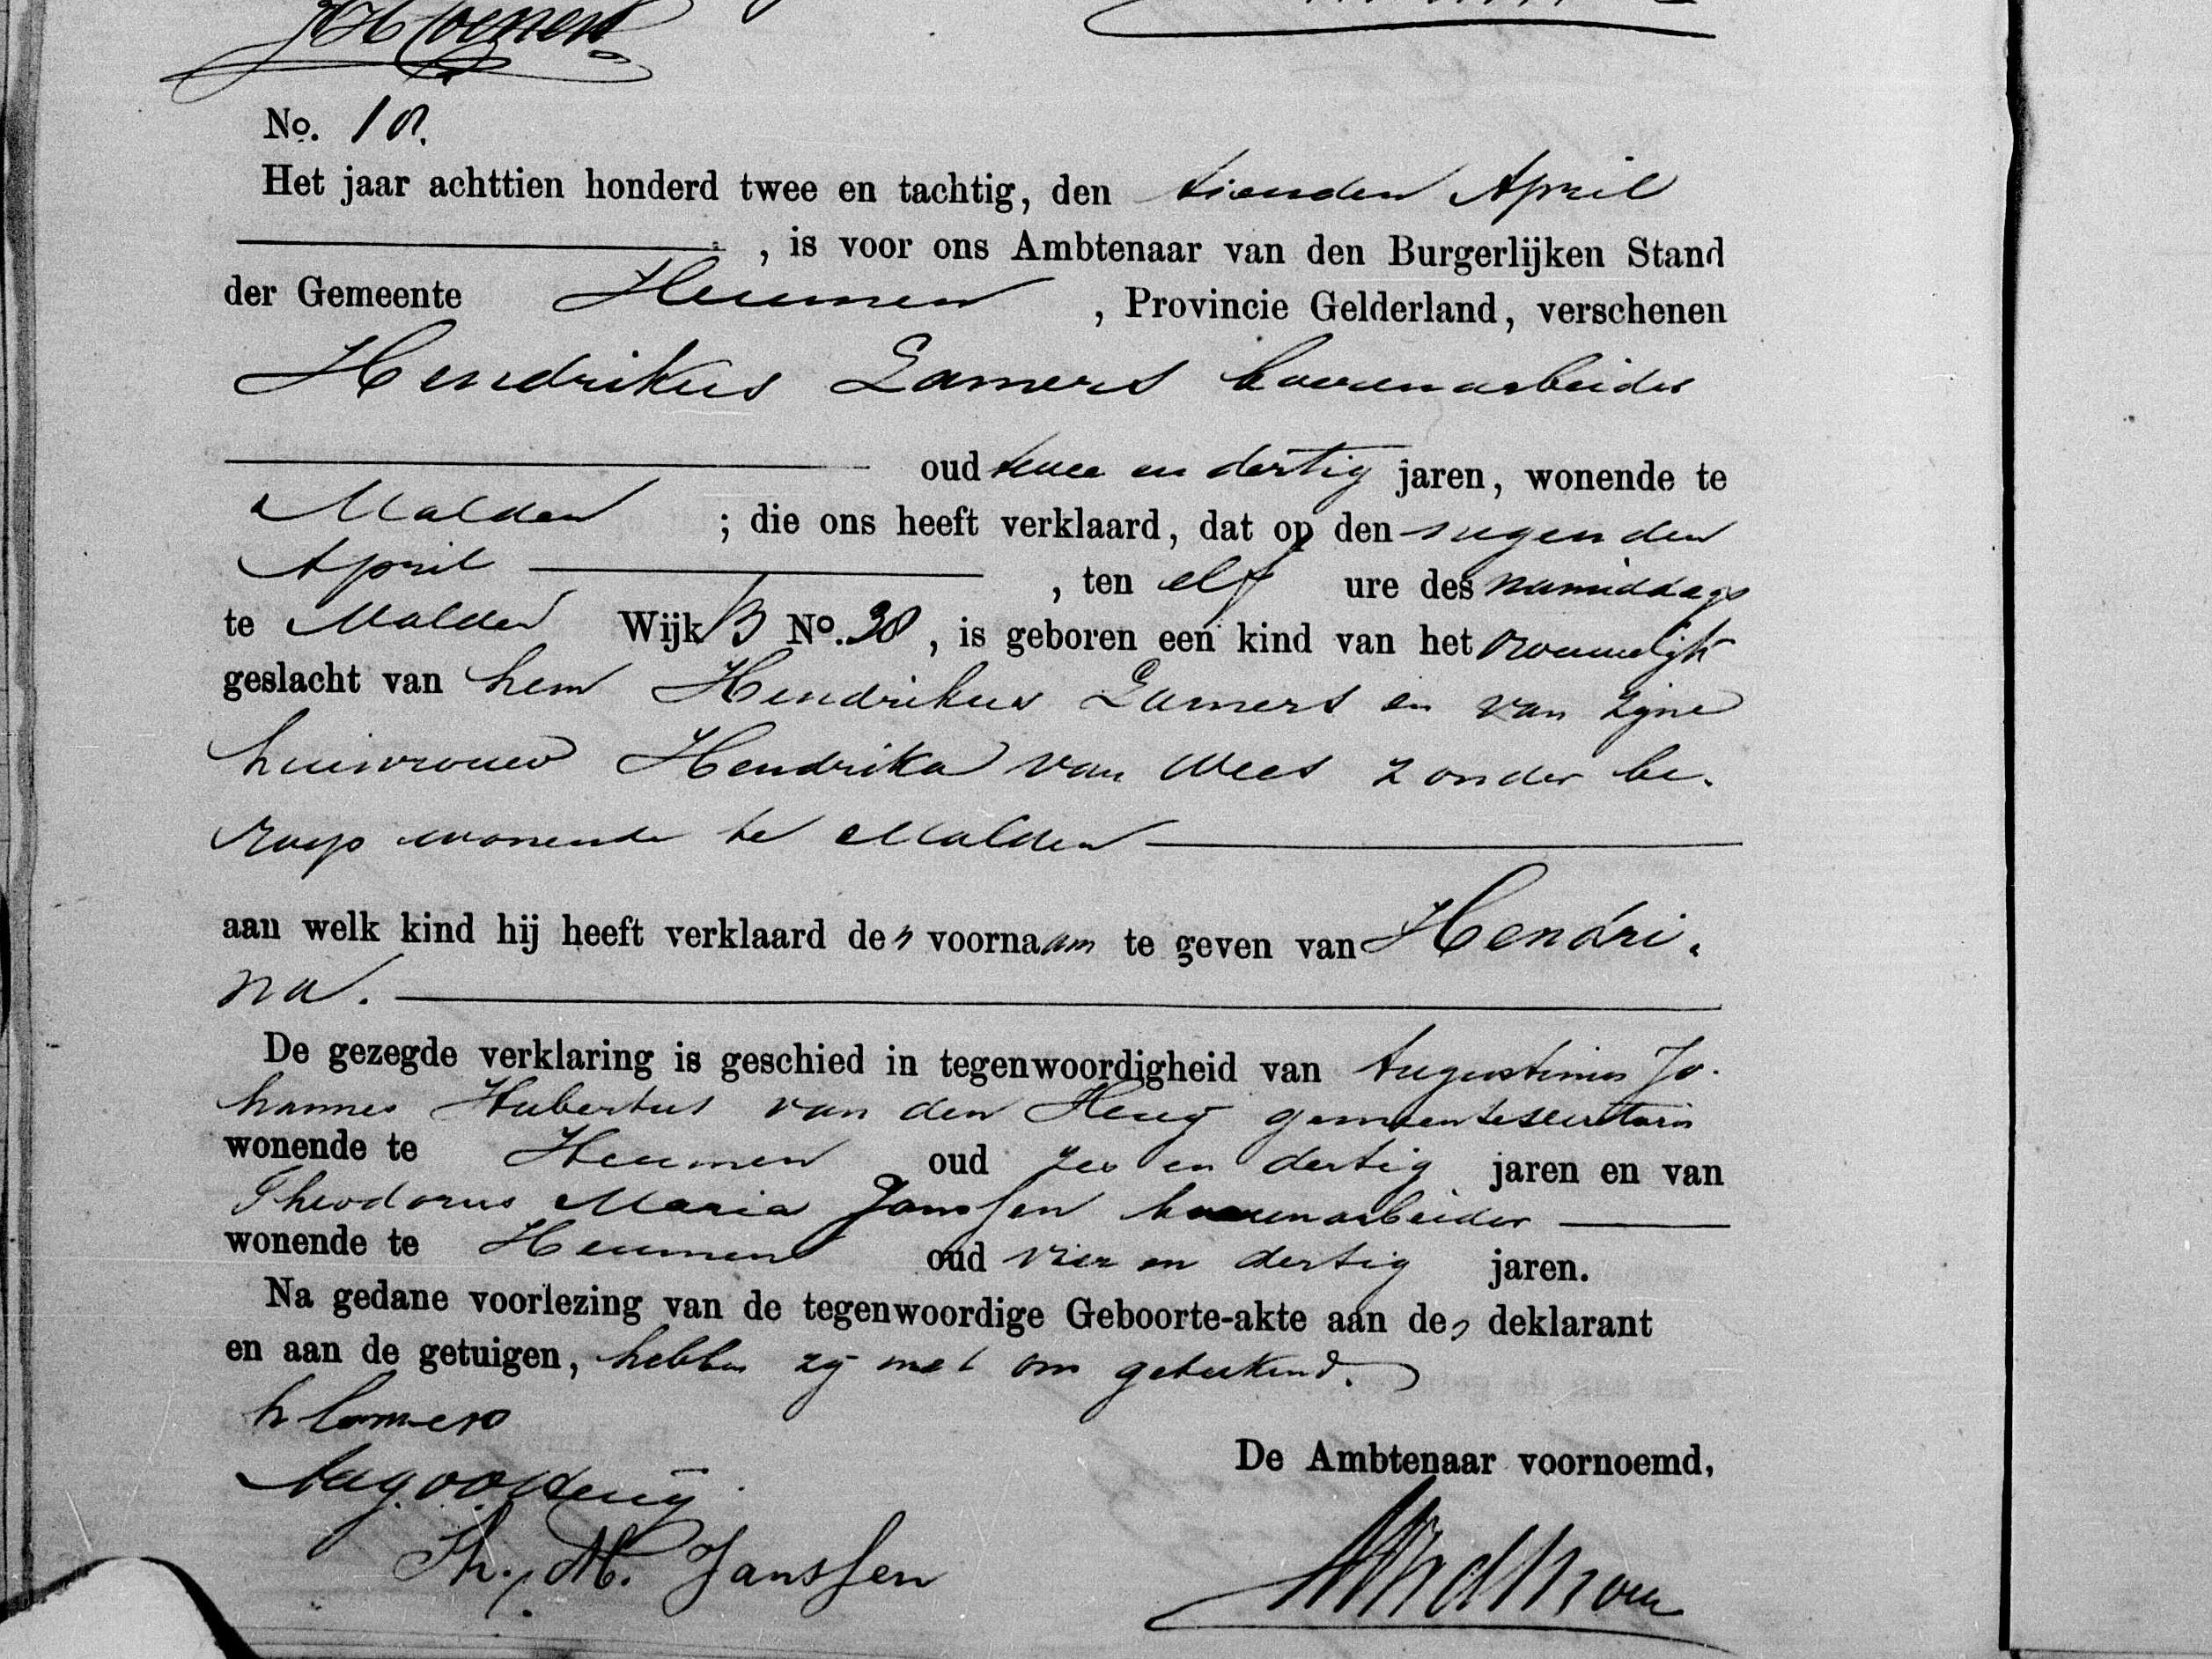 No. 18.
Het jaar achttien honderd twee en tachtig, den tienden April
, is voor ons Ambtenaar van den Burgerlijken Stand
der Gemeente Heumen , Provincie Gelderland, verschenen
Hendrikus Lamers bouwenarbeider
oud twee en dertig jaren, wonende te
Malden ; die ons heeft verklaard, dat op den negenden
April , ten elf ure des namiddags
te Malden Wijk B No. 38, is geboren een kind van het vrouwelijk
geslacht van hem Hendrikus Lamers en van zijne
huisvrouw Hendrika van Wees zonder be-
roep wonende te Malden
aan welk kind hij heeft verklaard den voornaam te geven van Hendri-
na.
De gezegde verklaring is geschied in tegenwoordigheid van Augustinus Jo-
hannes Hubertus van den Heuij gemeentesecretaris
wonende te Heumen oud zes en dertig jaren en van
Theodorus Maria Janssen bouwenarbeider
wonende te Heumen oud vier en dertig jaren.
Na gedane voorlezing van de tegenwoordige Geboorte-akte aan den deklarant
en aan de getuigen, hebben zij met ons geteekend.
h lamers
De Ambtenaar voornoemd,
Th. M. Janssen